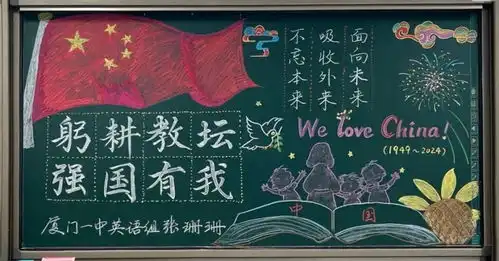 躬耕教坛
强国有我
厦门一中英语组张珊珊
不忘本来
吸收外来
面向未来
We love China!
(1949~2024)
中国